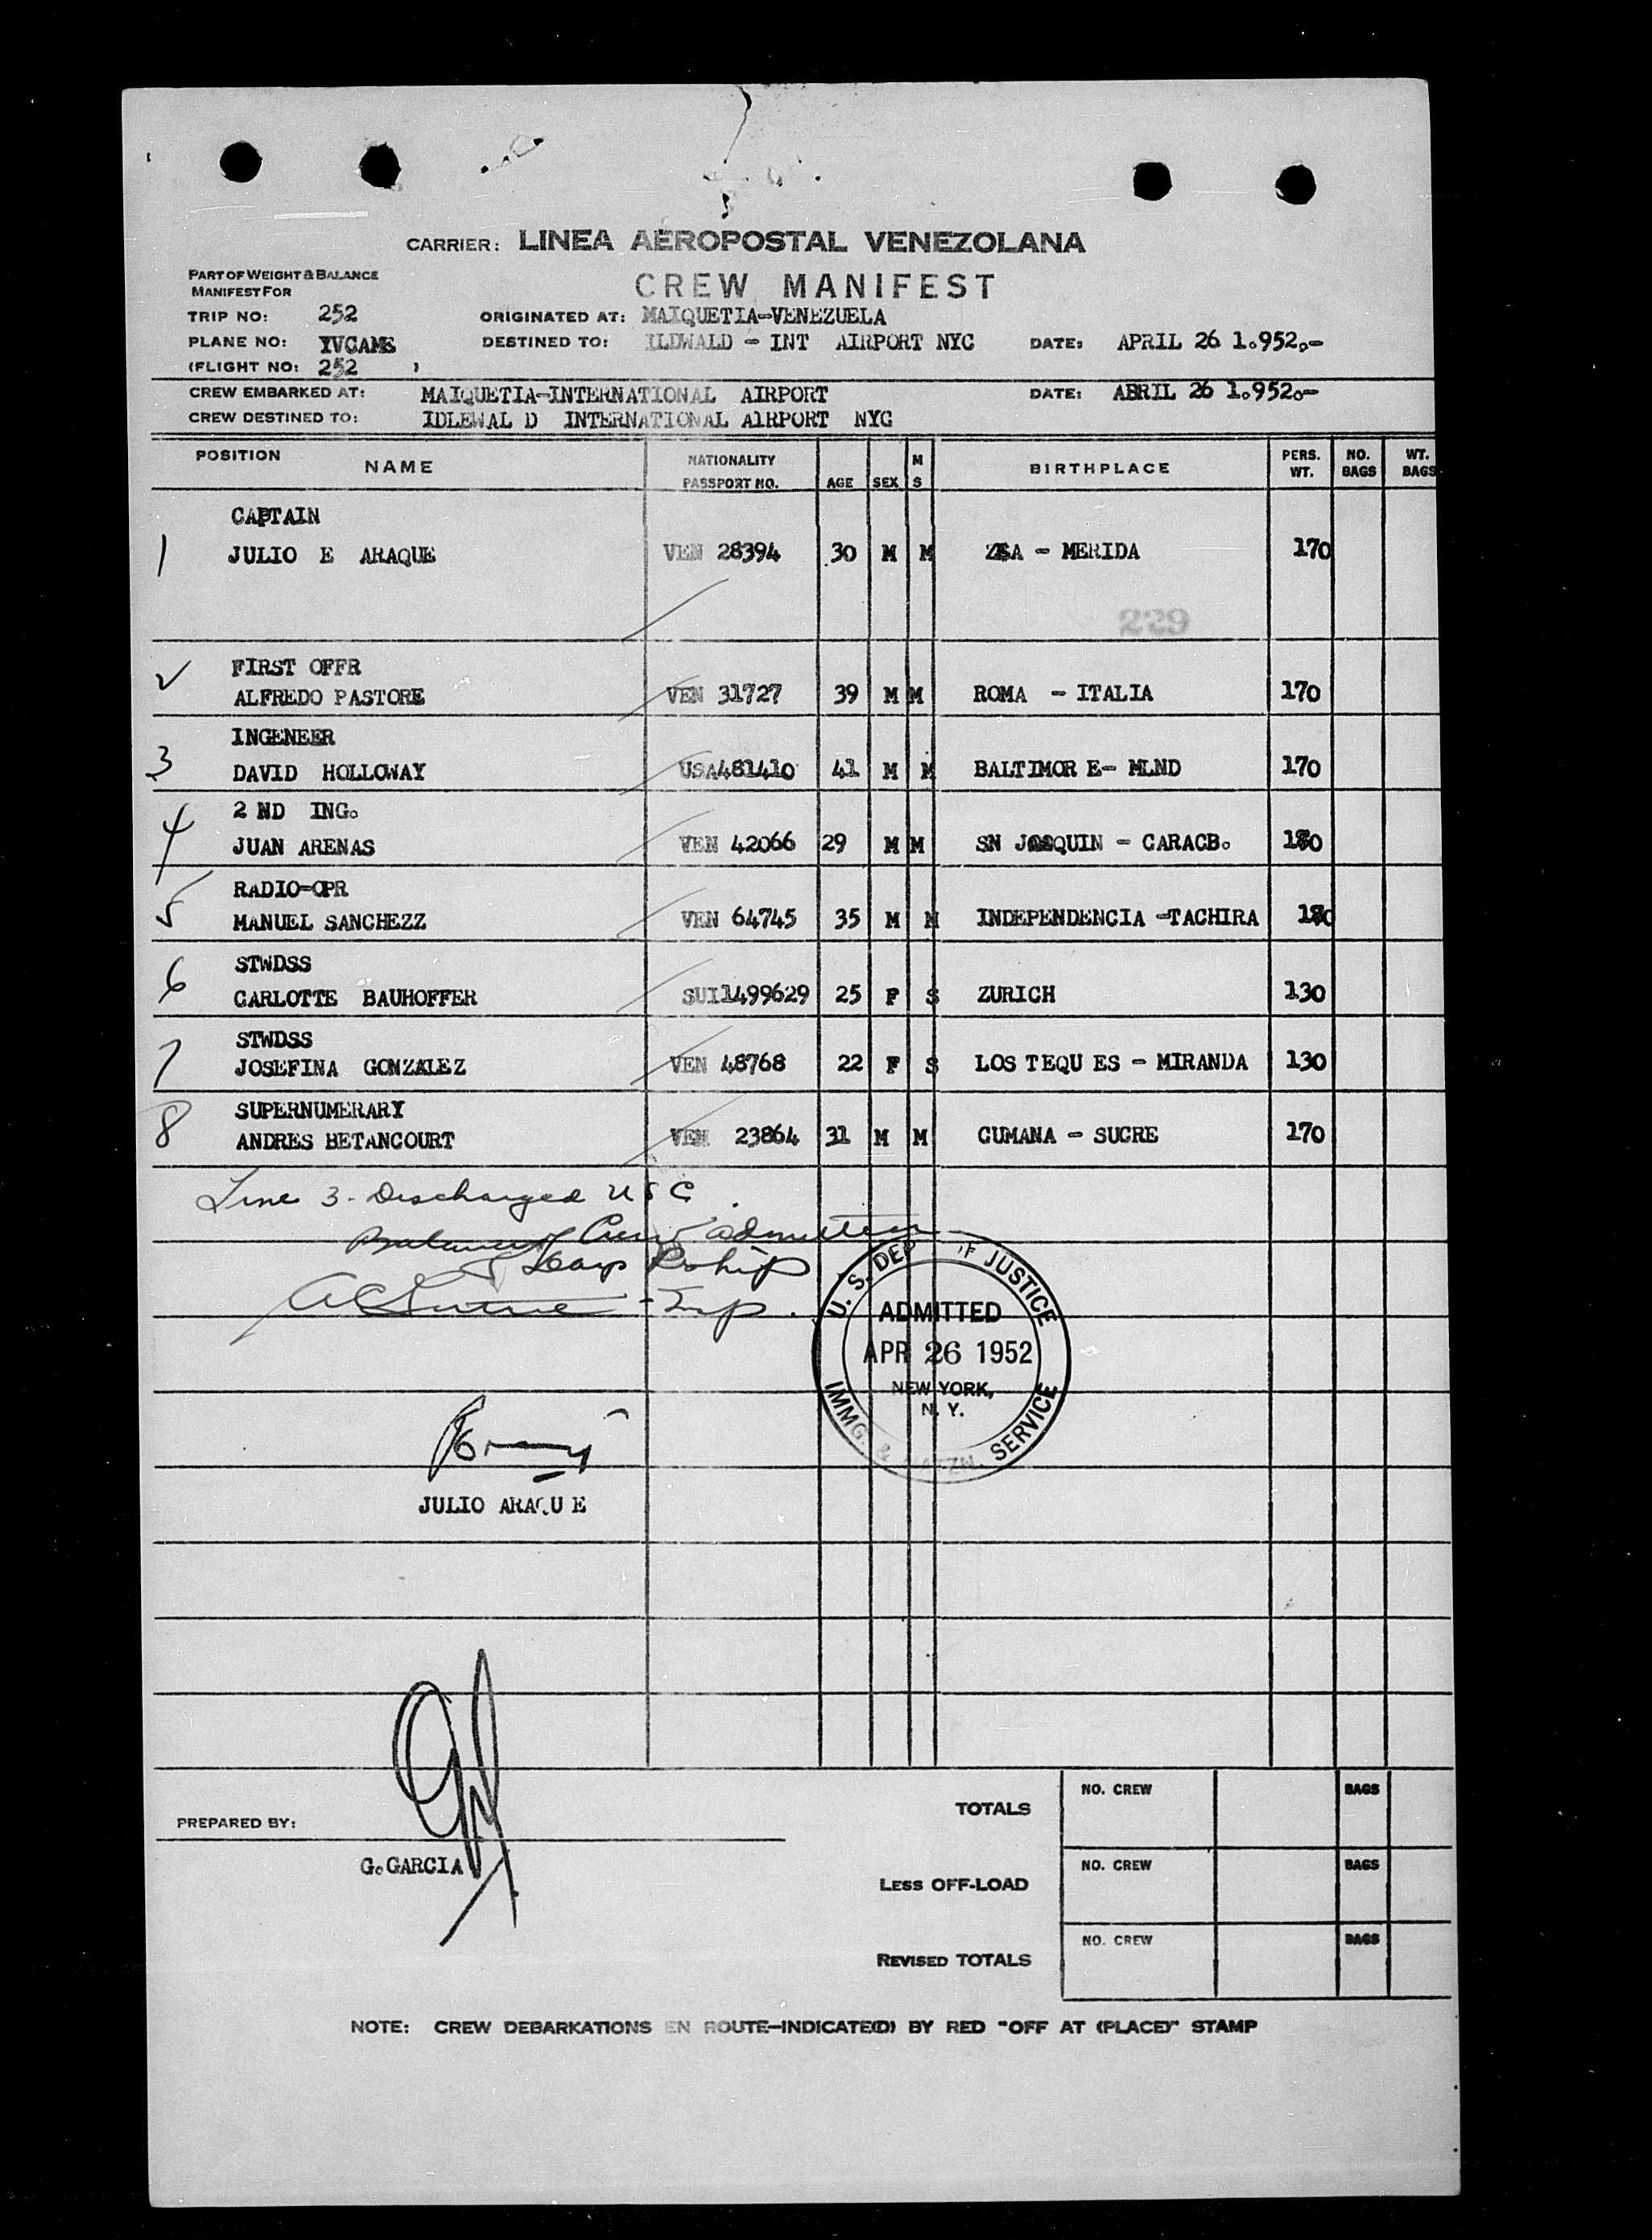 CARRIER: LINEA AEROPOSTAL VENEZOLANA
PART OF WEIGHT & BALANCE
MANIFEST FOR
CREW MANIFEST
TRIP NO: 252 ORIGINATED AT: MAIQUETIA-VENEZUELA
PLANE NO: YVCAMS DESTINED TO: ILDWALD - INT AIRPORT NYC DATE: APRIL 26 1.952,-
(FLIGHT NO: 252 )
CREW EMBARKED AT: MAIQUETIA-INTERNATIONAL AIRPORT DATE: ABRIL 26 1.952.-
CREW DESTINED TO: IDLEWAL D INTERNATIONAL AIRPORT NYC
POSITION NAME NATIONALITY PASSPORT NO. AGE SEX M S BIRTHPLACE PERS. WT. NO. BAGS WT. BAGS
CAPTAIN
1 JULIO E ARAQUE VEN 28394 30 M M MERIDA 170
229
2 FIRST OFFR
ALFREDO PASTORE VEN 31727 39 M M ROMA - ITALIA 170
INGENEER
3 DAVID HOLLOWAY USA481410 41 M M BALTIMOR E- MLND 170
2 ND ING.
4 JUAN ARENAS VEN 42066 29 M M SN JOAQUIN - CARACB.
RADIO-OPR
5 MANUEL SANCHEZZ VEN 64745 35 M M INDEPENDENCIA -TACHIRA
STWDSS
6 CARLOTTE BAUHOFFER SUI1499629 25 F S ZURICH 130
STWDSS
7 JOSEFINA GONZALEZ VEN 48768 22 F S LOS TEQU ES - MIRANDA 130
SUPERNUMERARY
8 ANDRES BETANCOURT VEN 23864 31 M M CUMANA - SUCRE 170
Line 3 - Discharged USC
Balance of Crew admitted
Insp.
U. S. DEPT. OF JUSTICE
ADMITTED
APR 26 1952
NEW YORK,
N. Y.
IMMG. & NATZN. SERVICE
JULIO ARAQU E
TOTALS NO. CREW BAGS
PREPARED BY:
G. GARCIA
LESS OFF-LOAD NO. CREW BAGS
REVISED TOTALS NO. CREW BAGS
NOTE: CREW DEBARKATIONS EN ROUTE-INDICATE(D) BY RED "OFF AT (PLACE)" STAMP